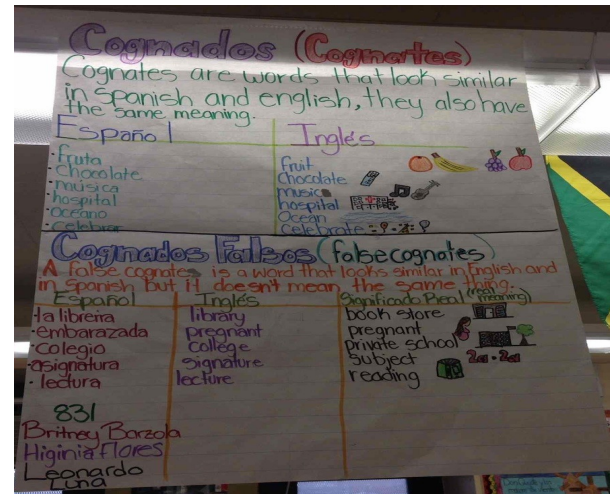 Cognados (Cognates)
Cognates are words that look similar
in Spanish and english, they also have
the same meaning.
Español Inglés
· fruta fruit
· Chocolate Chocolate
· música music
· hospital hospital
· Oceano Ocean
· celebrar celebrate
Cognados Falsos (false cognates)
A false cognates is a word that looks similar in English and
in Spanish but it doesn't mean the same thing.
Español Inglés Significado Real (real meaning)
· la libreira library book store
· embarazada pregnant pregnant
· colegio college private school
· asignatura signature subject
· lectura lecture reading
831
Britney Barzola
Higinia Flores
Leonardo
Luna